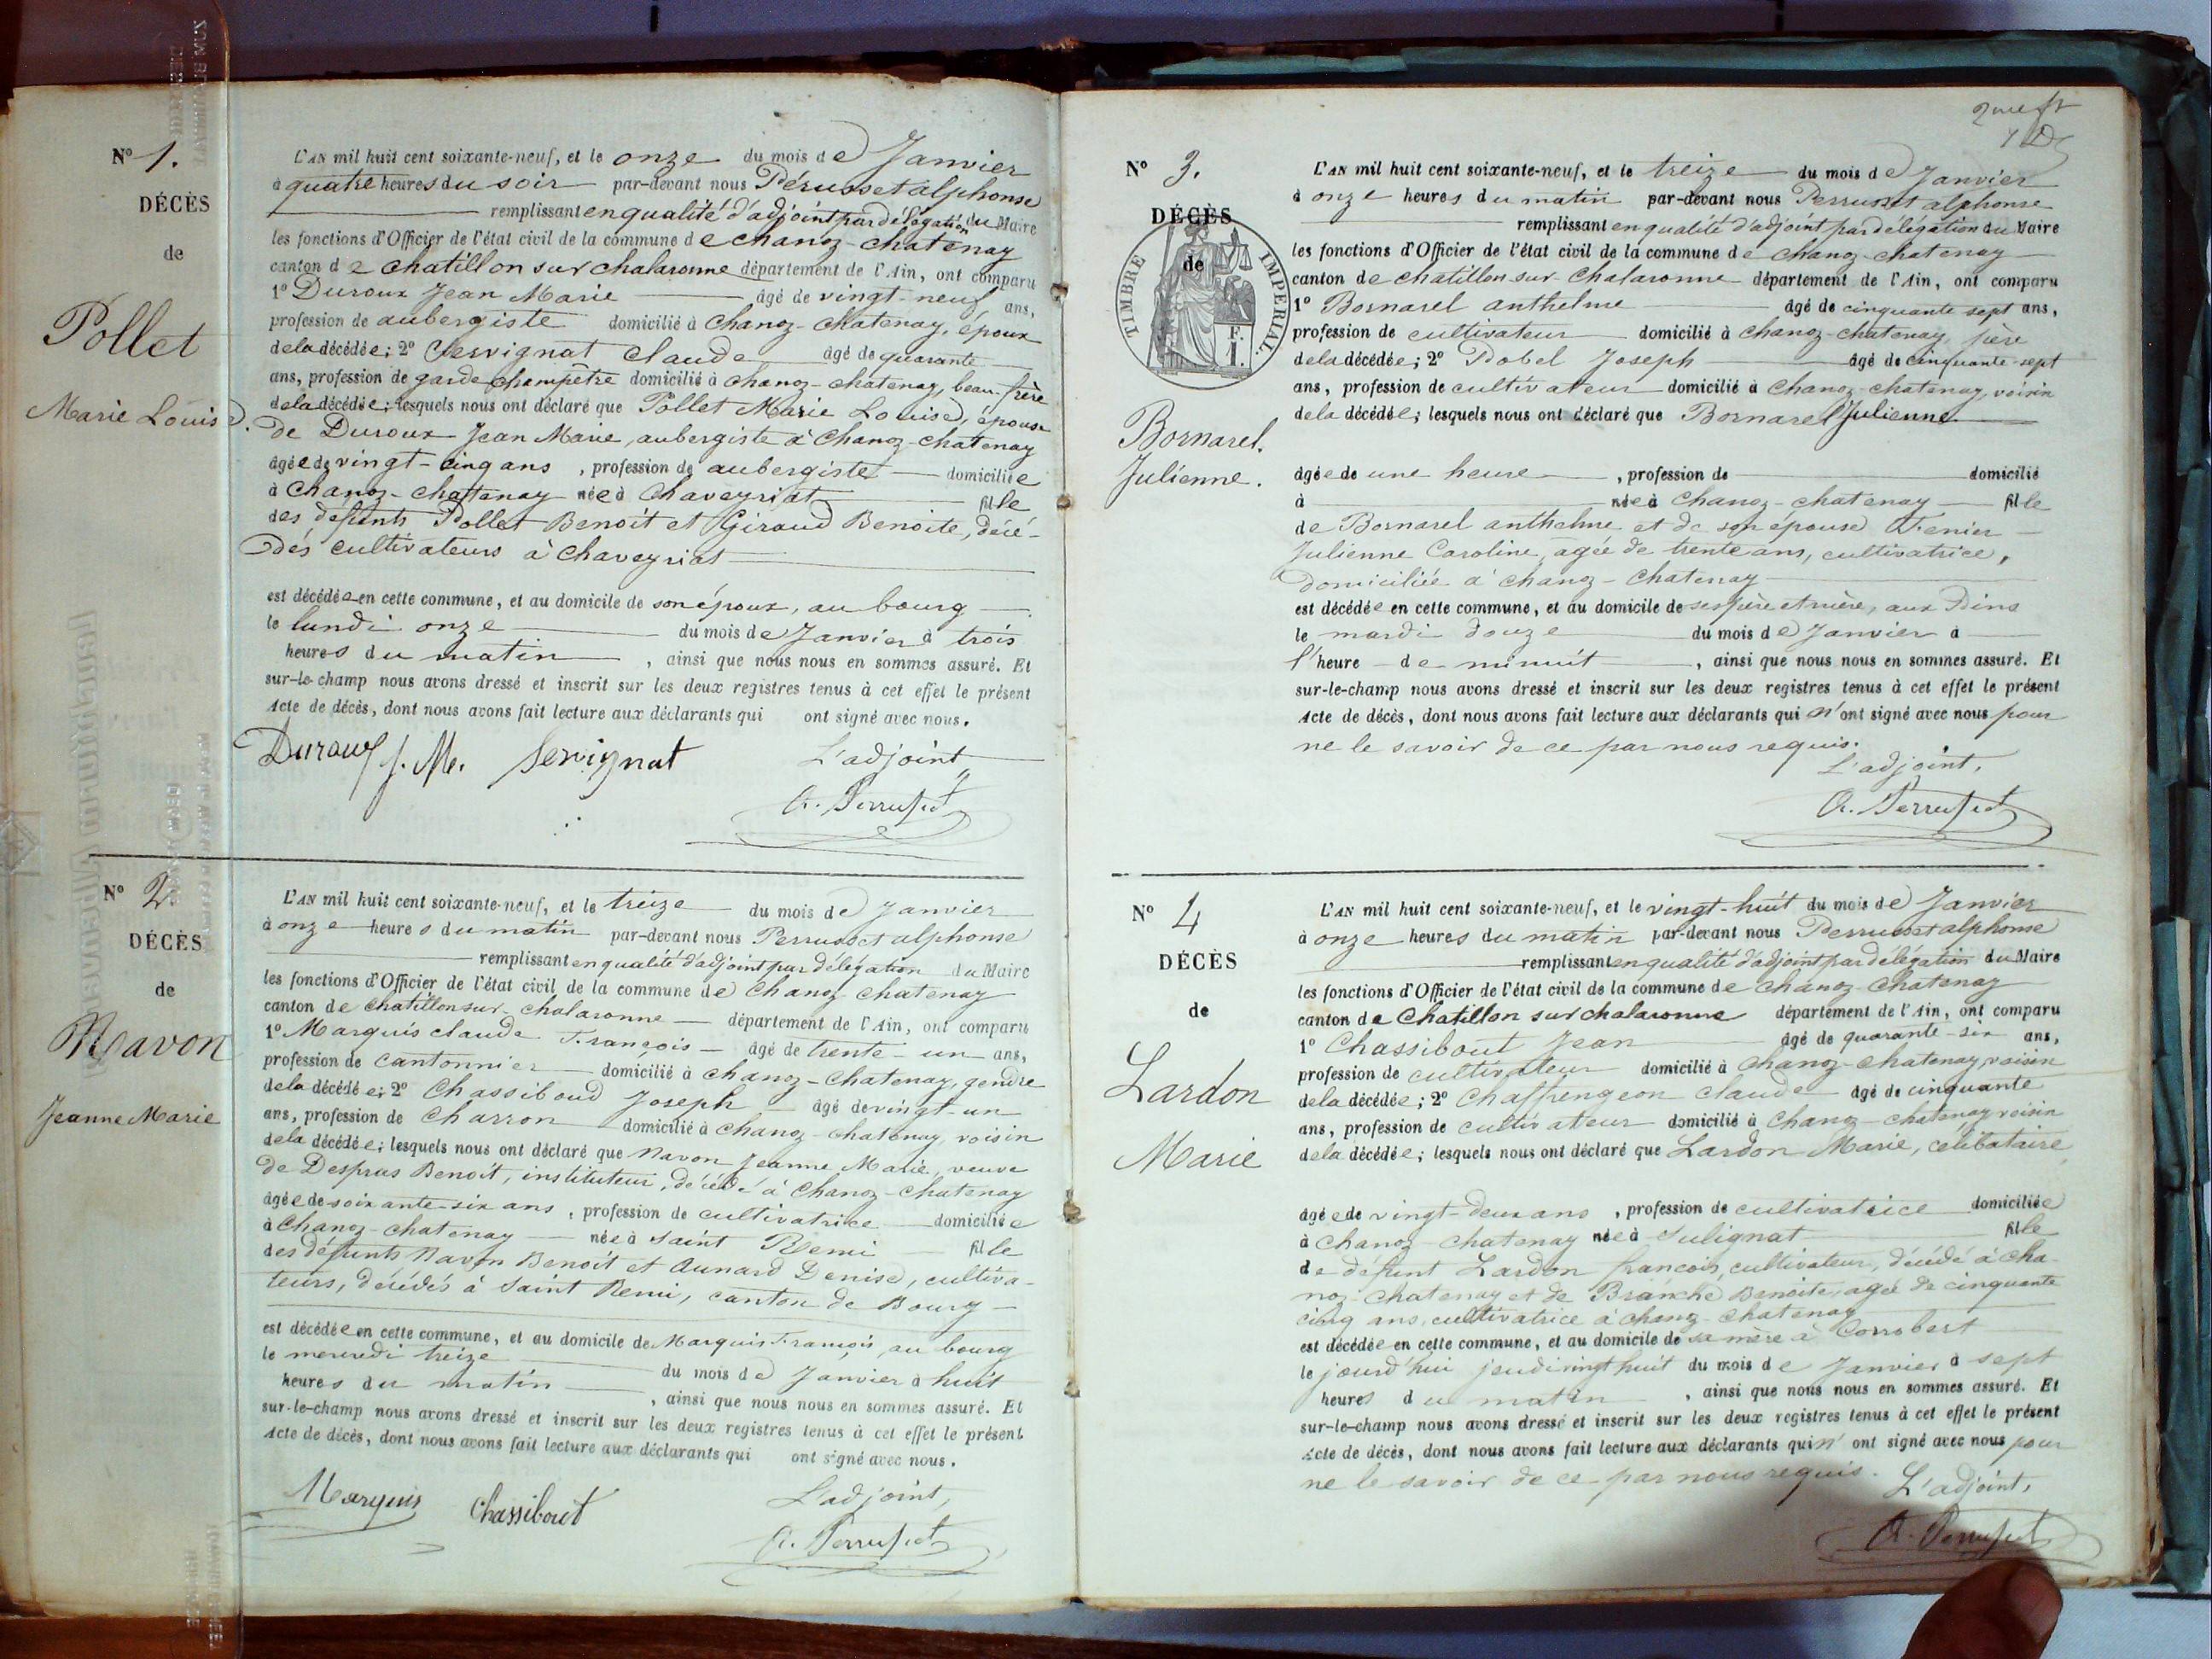 N° 1.
DÉCÈS
de
Pollet
Marie Louise.
L'AN mil huit cent soixante-neuf, et le onze du mois de Janvier
à quatre heures du soir par-devant nous Pérusset alphonse
remplissant en qualité d'adjoint par délégation du Maire
les fonctions d'Officier de l'état civil de la commune de chanoz-chatenay
canton de chatillon sur chalaronne département de l'Ain, ont comparu
1° Duroux Jean Marie âgé de vingt-neuf ans,
profession de aubergiste domicilié à chanoz-chatenay, époux
de la décédée; 2° Servignat claude âgé de quarante
ans, profession de garde champêtre domicilié à chanoz-chatenay, beau-frère
de la décédée; lesquels nous ont déclaré que Pollet Marie Louise, épouse
de Duroux Jean Marie, aubergiste à chanoz-chatenay
âgée de vingt-cinq ans, profession de aubergiste domiciliée
à chanoz-chatenay née à Chaveyriat fille
des défunts Pollet Benoit et Giraud Benoite, décé-
dés cultivateurs à chaveyriat
est décédée en cette commune, et au domicile de son époux, au bourg
le lundi onze du mois de Janvier à trois
heures du matin, ainsi que nous nous en sommes assuré. Et
sur-le-champ nous avons dressé et inscrit sur les deux registres tenus à cet effet le présent
Acte de décès, dont nous avons fait lecture aux déclarants qui ont signé avec nous.
Duroux J. M. Servignat L'adjoint
A. Perrusset
N° 2.
DÉCÈS
de
Navon
Jeanne Marie
L'AN mil huit cent soixante-neuf, et le treize du mois de Janvier
à onze heures du matin par-devant nous Perrusset alphonse
remplissant en qualité d'adjoint par délégation du Maire
les fonctions d'Officier de l'état civil de la commune de Chanoz chatenay
canton de chatillon sur chalaronne département de l'Ain, ont comparu
1° Marquis claude François âgé de trente-un ans,
profession de cantonnier domicilié à chanoz-chatenay, gendre
de la décédée; 2° Chassiboud Joseph âgé de vingt-un
ans, profession de charron domicilié à chanoz-chatenay, voisin
de la décédée; lesquels nous ont déclaré que Navon Jeanne Marie, veuve
de Despras Benoit, instituteur, décédé à Chanoz-chatenay
âgée de soixante-six ans, profession de cultivatrice domiciliée
à chanoz-chatenay née à saint Remi fille
des défunts Navon Benoit et Aunard Denise, cultiva-
teurs, décédés à saint Remi, canton de Bourg
est décédée en cette commune, et au domicile de Marquis François, au bourg
le mercredi treize du mois de Janvier à huit
heures du matin, ainsi que nous nous en sommes assuré. Et
sur-le-champ nous avons dressé et inscrit sur les deux registres tenus à cet effet le présent
Acte de décès, dont nous avons fait lecture aux déclarants qui ont signé avec nous.
Marquis Chassibout L'adjoint,
A. Perrusset
N° 3.
DÉCÈS
de
TIMBRE IMPERIAL.
F.
1.
Bornarel.
Julienne.
L'AN mil huit cent soixante-neuf, et le treize du mois de Janvier
à onze heures du matin par-devant nous Perrusset alphonse
remplissant en qualité d'adjoint par délégation du Maire
les fonctions d'Officier de l'état civil de la commune de chanoz-chatenay
canton de chatillon sur chalaronne département de l'Ain, ont comparu
1° Bornarel anthelme âgé de cinquante sept ans,
profession de cultivateur domicilié à chanoz-chatenay, père
de la décédée; 2° Bobel Joseph âgé de cinquante-sept
ans, profession de cultivateur domicilié à Chanoz-chatenay, voisin
de la décédée; lesquels nous ont déclaré que Bornarel Julienne
âgée de une heure, profession de domicilié
à née à Chanoz-chatenay fille
de Bornarel anthelme et de son épouse
Julienne Caroline, âgée de trente ans, cultivatrice,
domiciliée à chanoz-chatenay
est décédée en cette commune, et au domicile de ses père et mère, aux
le mardi douze du mois de Janvier à
l'heure de minuit, ainsi que nous nous en sommes assuré. Et
sur-le-champ nous avons dressé et inscrit sur les deux registres tenus à cet effet le présent
Acte de décès, dont nous avons fait lecture aux déclarants qui n'ont signé avec nous pour
ne le savoir de ce par nous requis.
L'adjoint,
A. Perrusset
N° 4
DÉCÈS
de
Lardon
Marie
L'AN mil huit cent soixante-neuf, et le vingt-huit du mois de Janvier
à onze heures du matin par-devant nous Perrusset alphonse
remplissant en qualité d'adjoint par délégation du Maire
les fonctions d'Officier de l'état civil de la commune de chanoz-chatenay
canton de Chatillon sur chalaronne département de l'Ain, ont comparu
1° Chassibout Jean âgé de quarante-six ans,
profession de cultivateur domicilié à chanoz-chatenay, voisin
de la décédée; 2° Chaffrengeon claude âgé de cinquante
ans, profession de cultivateur domicilié à chanoz-chatenay voisin
de la décédée; lesquels nous ont déclaré que Lardon Marie, célibataire
âgée de vingt-deux ans, profession de cultivatrice domiciliée
à chanoz chatenay née à Sulignat fille
de défunt Lardon françois, cultivateur, décédé à cha-
noz-chatenay et de Branche Benoite, agée de cinquante
cinq ans, cultivatrice à chanoz-chatenay
est décédée en cette commune, et au domicile de sa mère à Corrobert
le jourd'hui jeudi vingt huit du mois de Janvier à sept
heures du matin, ainsi que nous nous en sommes assuré. Et
sur-le-champ nous avons dressé et inscrit sur les deux registres tenus à cet effet le présent
Acte de décès, dont nous avons fait lecture aux déclarants qui n'ont signé avec nous pour
ne le savoir de ce par nous requis. L'adjoint,
A. Perrusset